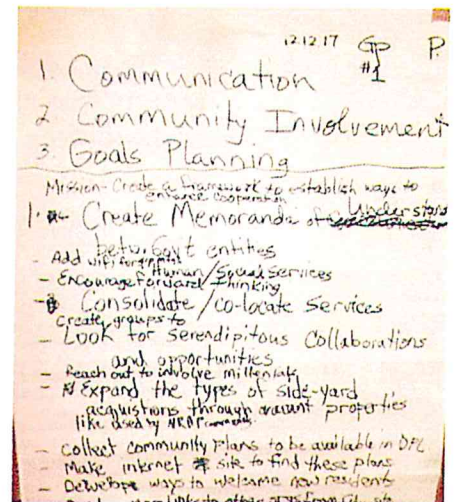 12.12.17 Gp P.
#1
1. Communication
2. Community Involvement
3. Goals Planning
Mission - Create a framework to establish ways to
enhance cooperation
1. Create Memoranda of Understand
betw. Govt entities
- Add wifi for
Human/Social Services
- Encourage Forward Thinking
- Consolidate/co-locate Services
Create groups to
- Look for Serendipitous Collaborations
and opportunities
- Reach out to involve millenials
- Expand the types of side-yard
acquistions through vacant properties
like used by
- collect community plans to be available in DPL
- Make internet site to find these plans
- Develope ways to welcome new residents
links to other